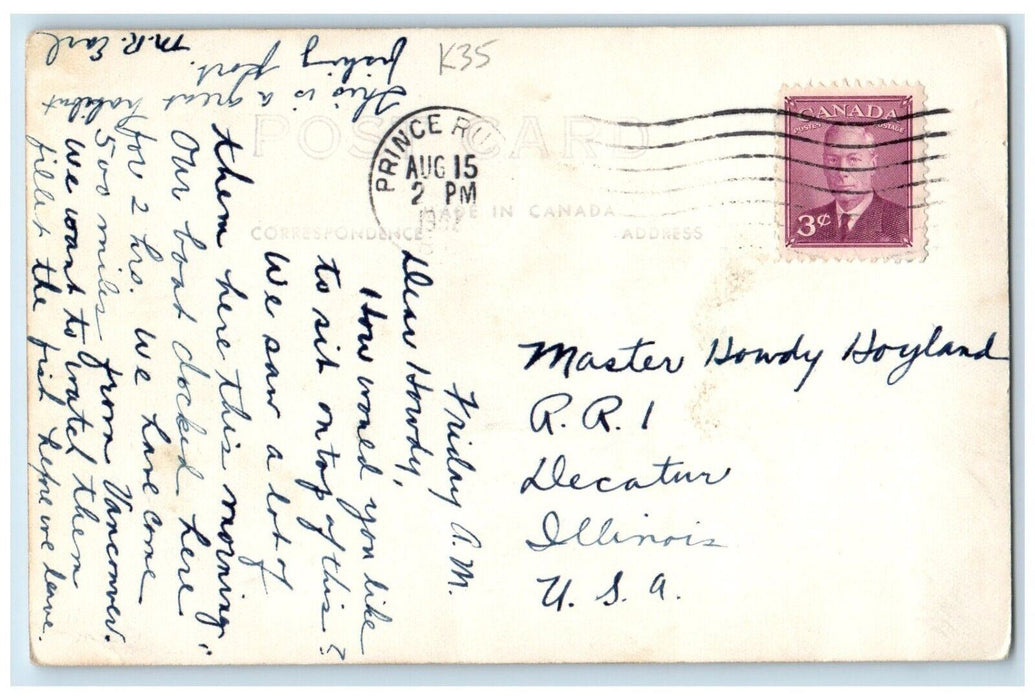 K35
POST CARD
PRINCE RU
AUG 15
2 PM
MADE IN CANADA
CORRESPONDENCE
ADDRESS
CANADA
POSTES POSTAGE
3¢
Friday A.M.
Dear Howdy,
How would you like
to sit on top of this?
We saw a lot of
them here this morning.
Our boat docked here
for 2 hrs. We have come
500 miles from Vancouver.
We want to watch them
fillet the fish before we leave.
This is a great halibut
fishing port.
M.R. Earl
Master Howdy Hoyland
R.R.1
Decatur
Illinois
U.S.A.